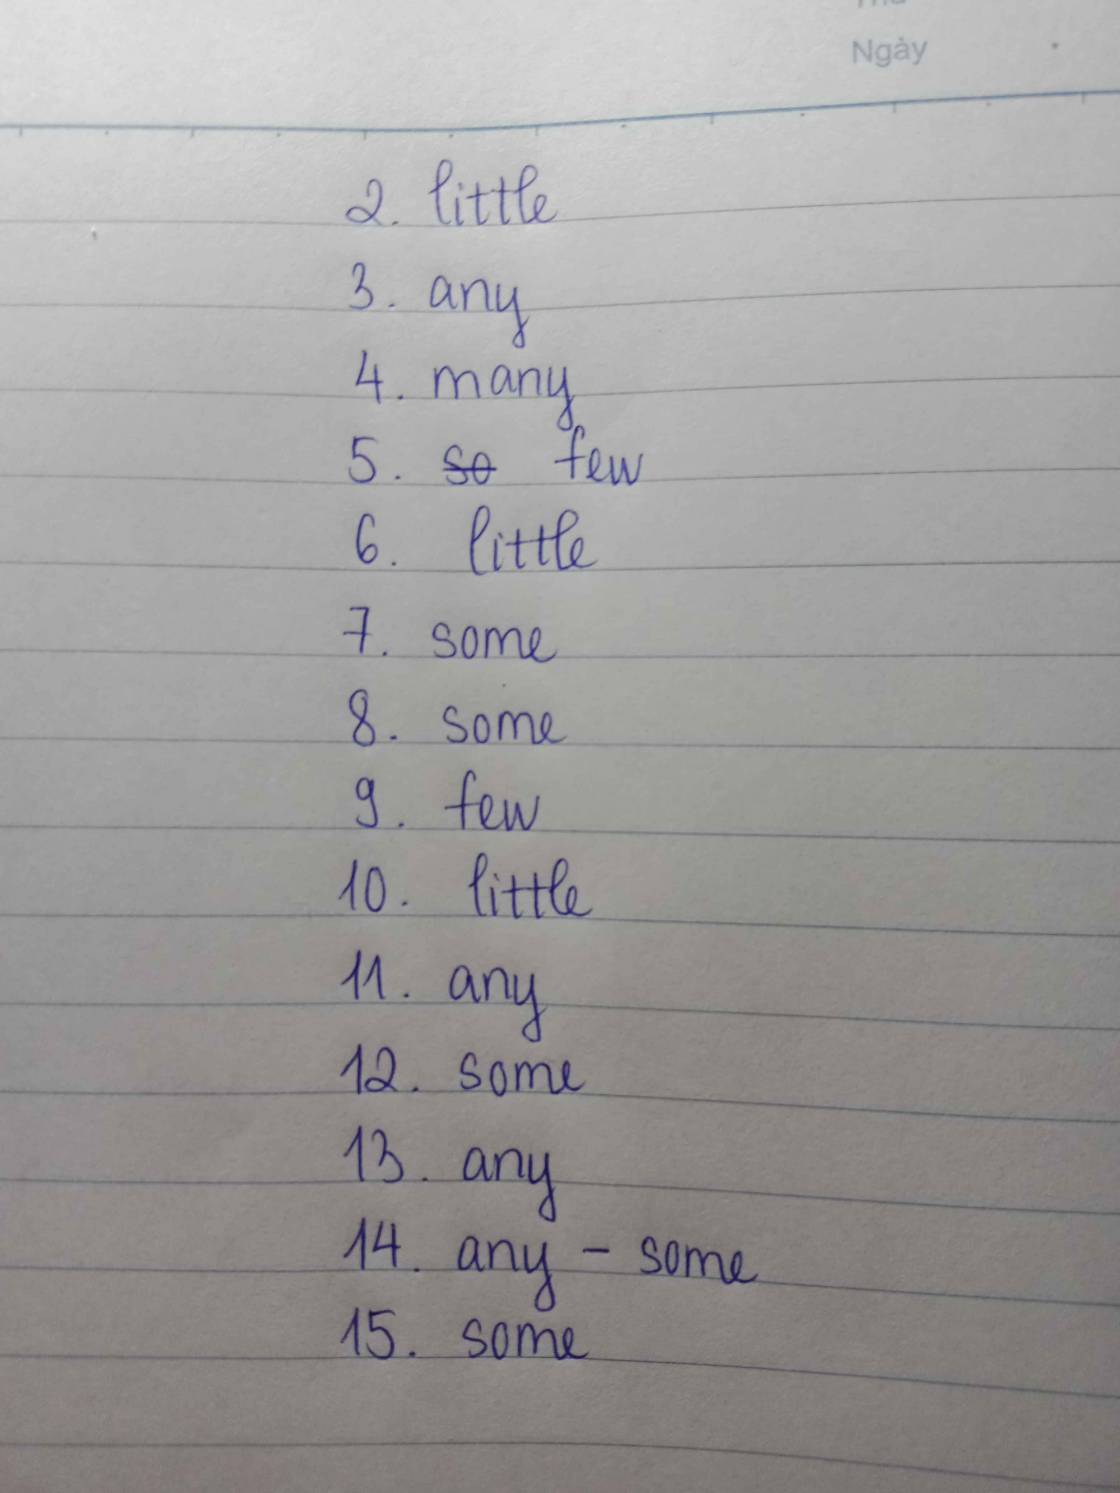 Ngày
2. little
3. any
4. many
5. so few
6. little
7. some
8. some
9. few
10. little
11. any
12. some
13. any
14. any - some
15. some